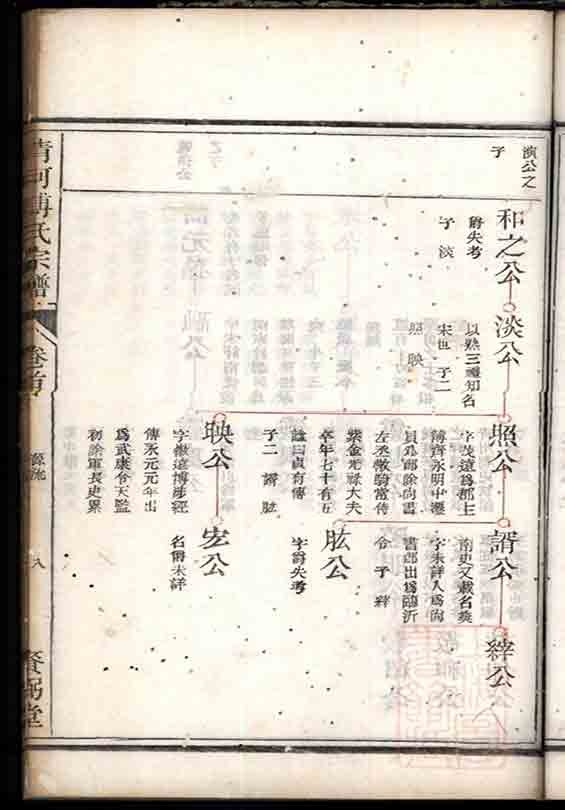 演公之
子
和之公
爵失考
子 淡
淡公
以熟三禮知名
宋世 子二
照 映
照公
字茂遠為郡主
簿齊永明中遷
員外郎徐尚書
左丞散騎常侍
紫金光祿大夫
卒年七十有五
諡曰貞有傳
子二 諝 肱
映公
字徽遠博涉經
傳永元元年出
爲武康令天監
初除軍長史累
諝公
南史文載名㸅
字未詳人爲尚
書郎出爲臨沂
令 子 縡
肱公
字爵失考
宏公
名爵未詳
縡公
清河傅氏宗譜
卷首
源流
八
賚弼堂